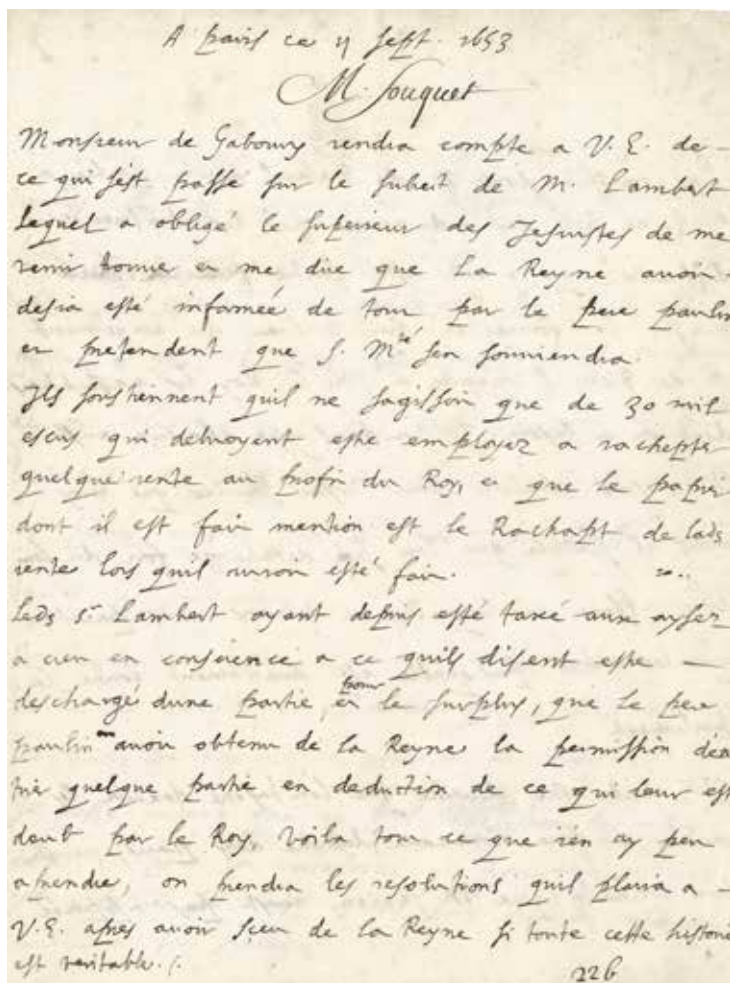 A Paris ce 11 Sept. 1653
M. Fouquet
Monsieur de Gaboury rendra compte a V. E. de
ce qui s'est passé sur le subiet de M. Lambert
lequel a obligé le superieur des Jesuistes de me
venir trouver et me dire que La Reyne avoit
desia esté informée de tout par le pere paulin
et pretendent que S. Mté sen souviendra.
Ils soustiennent quil ne sagissoit que de 30 mil
escus qui debvoyent estre employez a rachepter
quelque rente au profit du Roy, et que le papier
dont il est fait mention est le Rachapt de lade
rente lors quil auroit esté fait.
Leds Sr Lambert ayant depuis esté taxé aux aysez
a creu en conscience a ce quils disent estre
deschargé dune partie, et pour le surplus, que le pere
paulin avoit obtenu de la Reyne la permission den
tirer quelque partie en deduction de ce qui leur est
deub par le Roy, voila tout ce que i'en ay peu
aprendre, on prendra les resolutions quil plaira a
V. E. apres avoir sceu de la Reyne si toute cette histoire
est veritable.
226